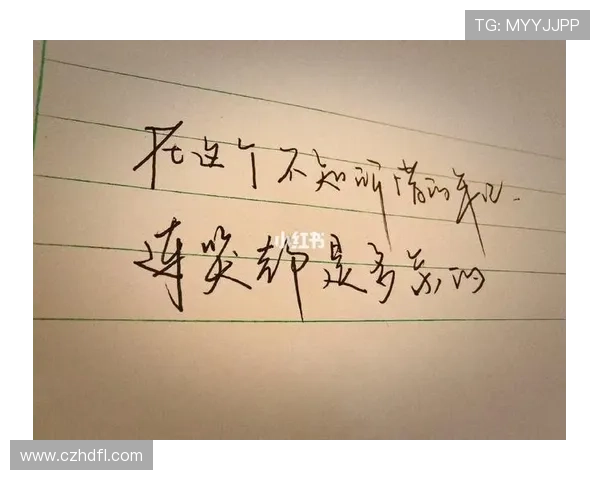 TG: MYYJJPP
在这个不知所措的年纪.
小红书
连笑都是多余的
www.czhdfl.com